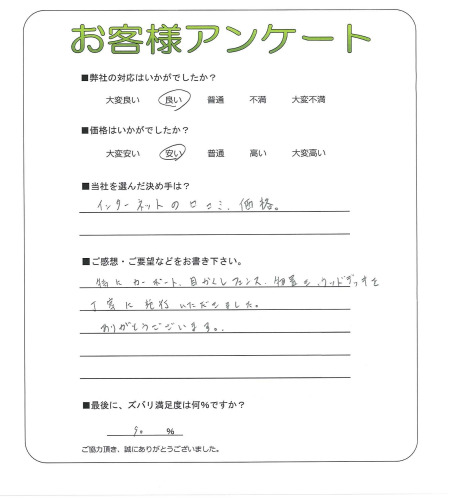 お客様アンケート
■弊社の対応はいかがでしたか?
大変良い 良い 普通 不満 大変不満
■価格はいかがでしたか?
大変安い 安い 普通 高い 大変高い
■当社を選んだ決め手は?
インターネットの口コミ、価格。
■ご感想・ご要望などをお書き下さい。
特にカーポート、目かくしフェンス、物置と、ウッドデッキを
丁寧に施行いただきました。
ありがとうございます。
■最後に、ズバリ満足度は何%ですか?
90 %
ご協力頂き、誠にありがとうございました。